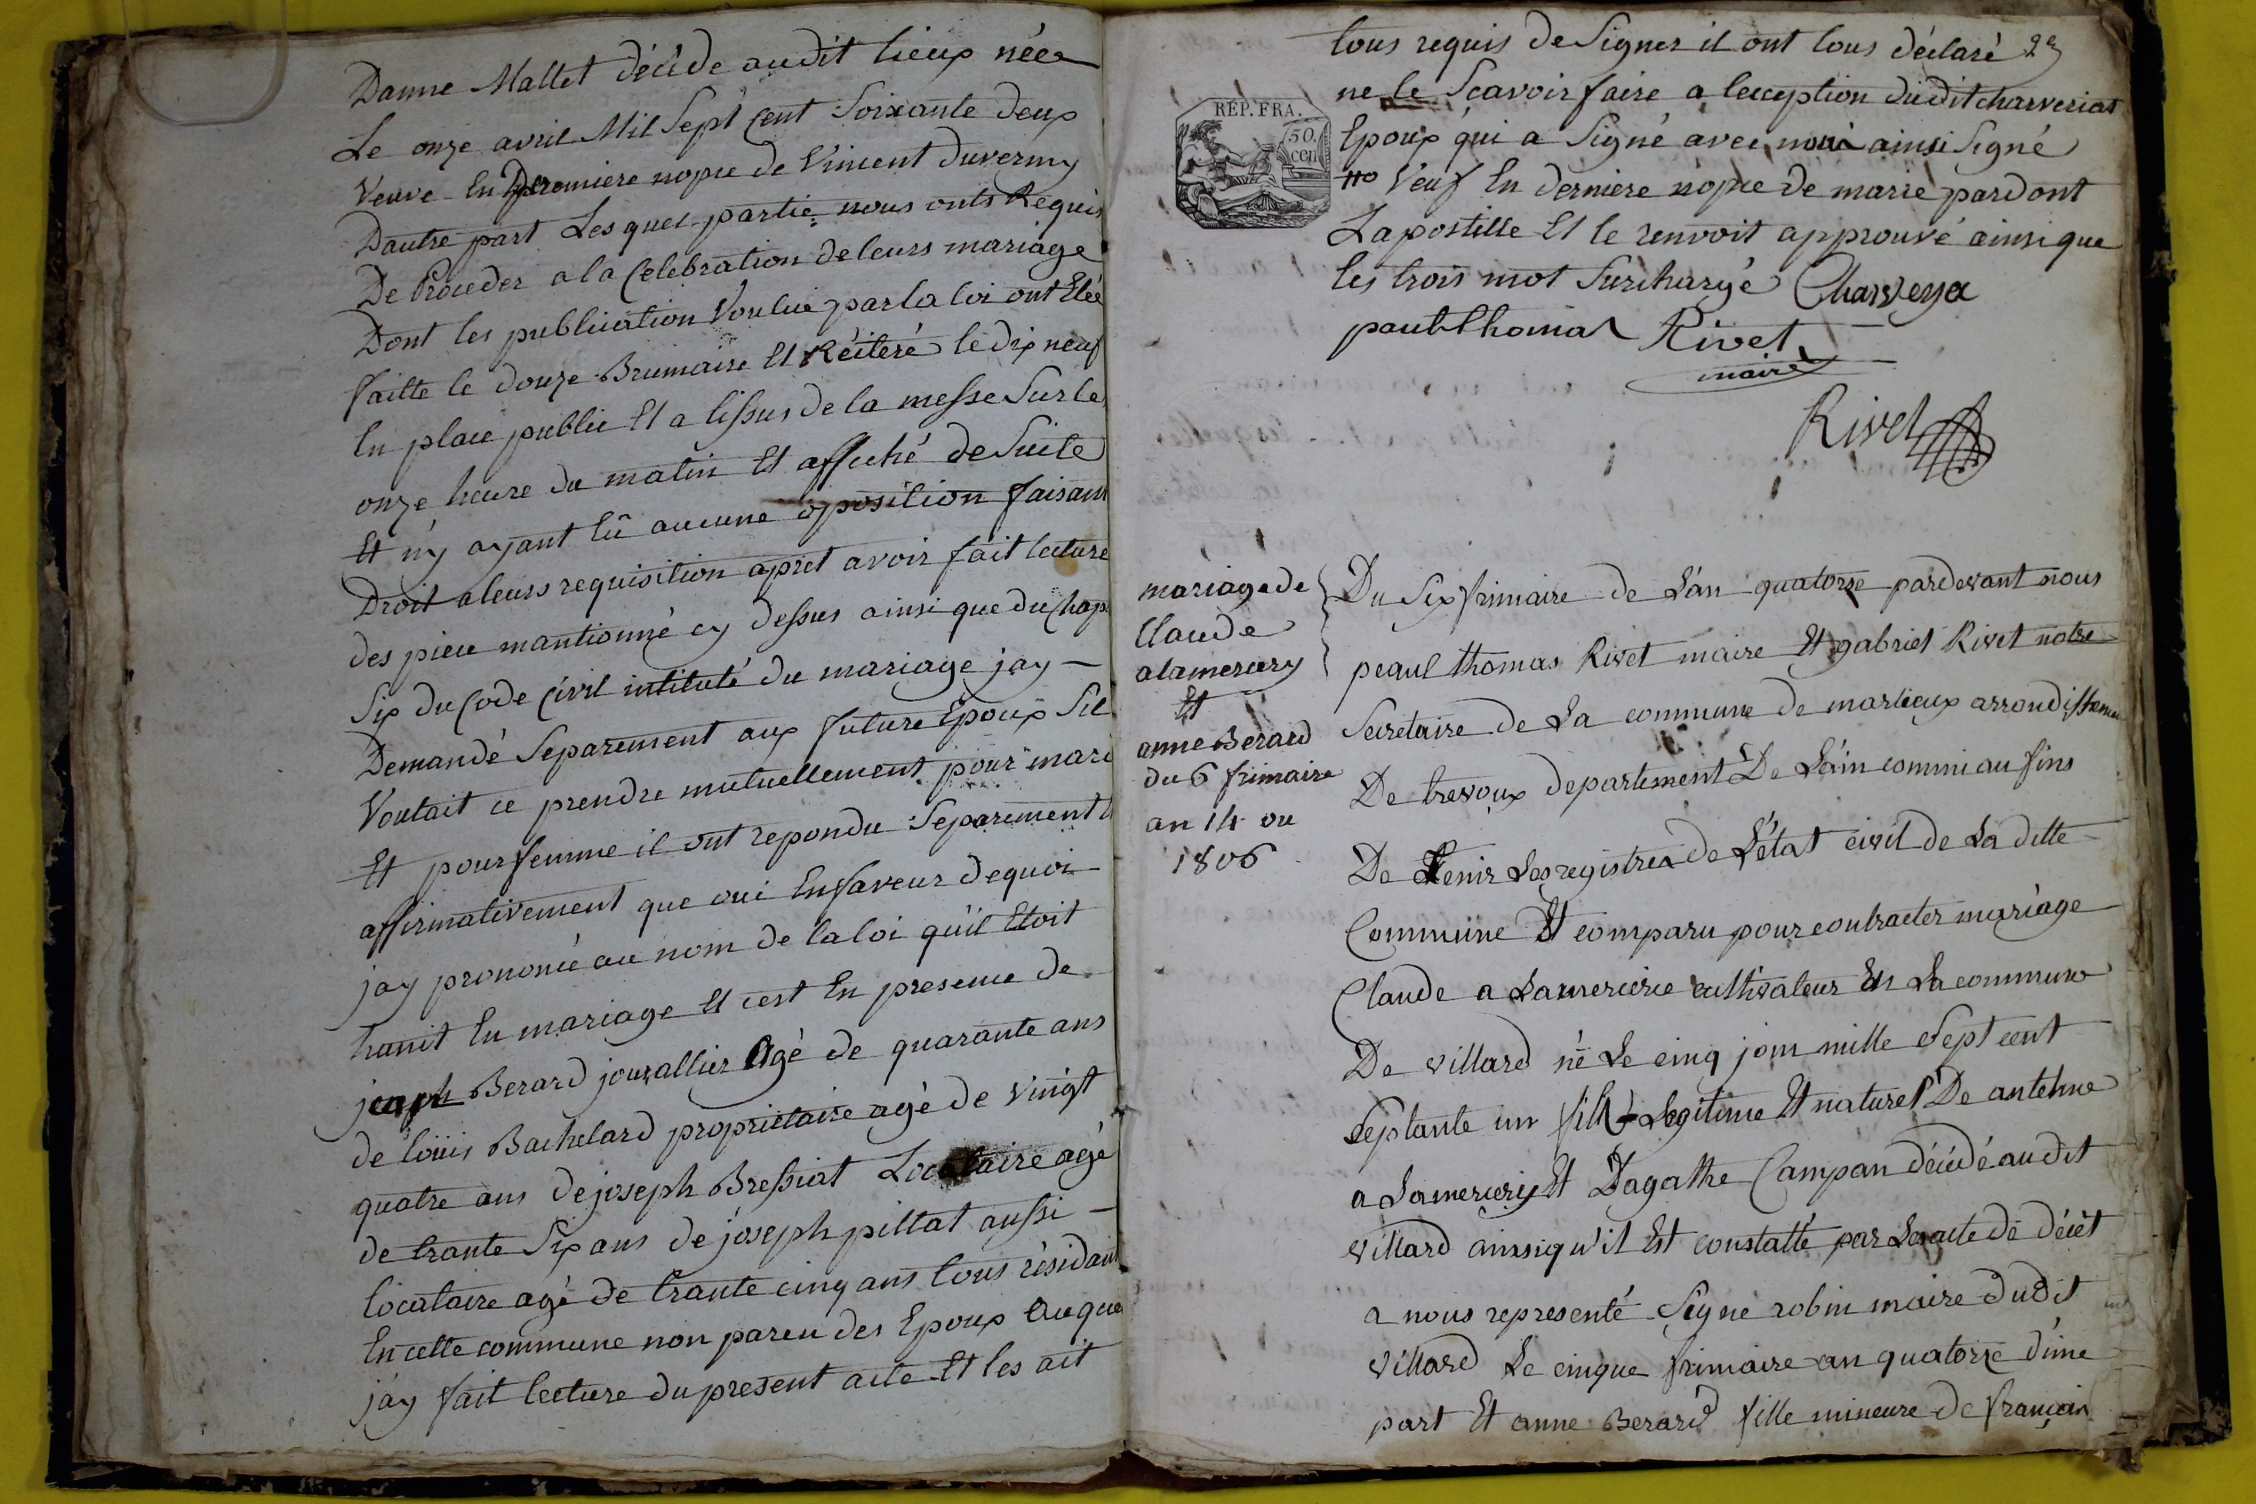 Danne Mallet décidé audit lieux née
Le onze avril Mil Sept Cent Soixante deux
Veuve En premiere nopce de Vincent duverny
Dautre part Les quel partie nous onts Requis
De Proceder a la Celebration de leurs mariage
Dont les publication Voulue par la loi ont Etée
faitte le douze Brumaire Et Réiteré le dix neuf
En place public Et a lissus de la messe Sur les
onze heure du matin Et affiché de Suite
Et n'y ayant Eû aucune oposition faisant
Droit a leurs requisition apret avoir fait lecture
des piece mantionné cy dessus ainsi que du Chap
Six du Code Civil intitulé du mariage jay
Demandé Separement aux future Epoux Sil
Voulait ce prendre mutuellement pour mari
Et pour femme il ont repondu Separement
affirmativement que oui En faveur de quoi
jay prononcé au nom de la loi qu'il Etoit
hunit En mariage Et cest En presence de
joseph Berard journallier Agé de quarante ans
de loüis Bachelard propriétaire agé de Vingt
quatre ans de joseph Bressiat Locataire agé
de trante Six ans de joseph pillat aussi
locataire agé de trante cinq ans tous résidant
En cette commune non paren des Epoux Auque
j'ay fait lecture du present acte Et les ait
tous requis de Signer il ont tous déclaré
ne le Scavoir faire a lecception dudit charveriat
Epoux qui a Signé avec nous ainsi Signé
REP. FRA.
50.
cen
Veuf En derniere nopce de marie pardont
Lapostille Et le renvoit approuvé ainsi que
les trois mot Surchargé Charveya
paul thomas Rivet
maire
Rivet
mariage de
Claude
alamercery
Et
anne Berard
du 6 frimaire
an 14 ou
1806
Du Six frimaire de L'an quatorze pardevant nous
peaul thomas Rivet maire Et gabriel Rivet notre
Secretaire de La commune de marlieux arrondissemen
De trevoux departement De L'ain commi au fins
De Tenir Les registres de L'état civil de La ditte
Commune Et comparu pour contracter mariage
Claude a Lamercerie cultivateur En La commune
De villard né Le cinq join mille Sept cent
Septante un fils Legitime Et naturel De antelme
a Lamercery Et Dagathe Campan décidé audit
villard ainsi qu'il Est constatté par Les acte de décèt
a nous representé Signé robin maire dudit
villard Le cinque frimaire an quatorze d'une
part Et anne Berard fille mineure de françois